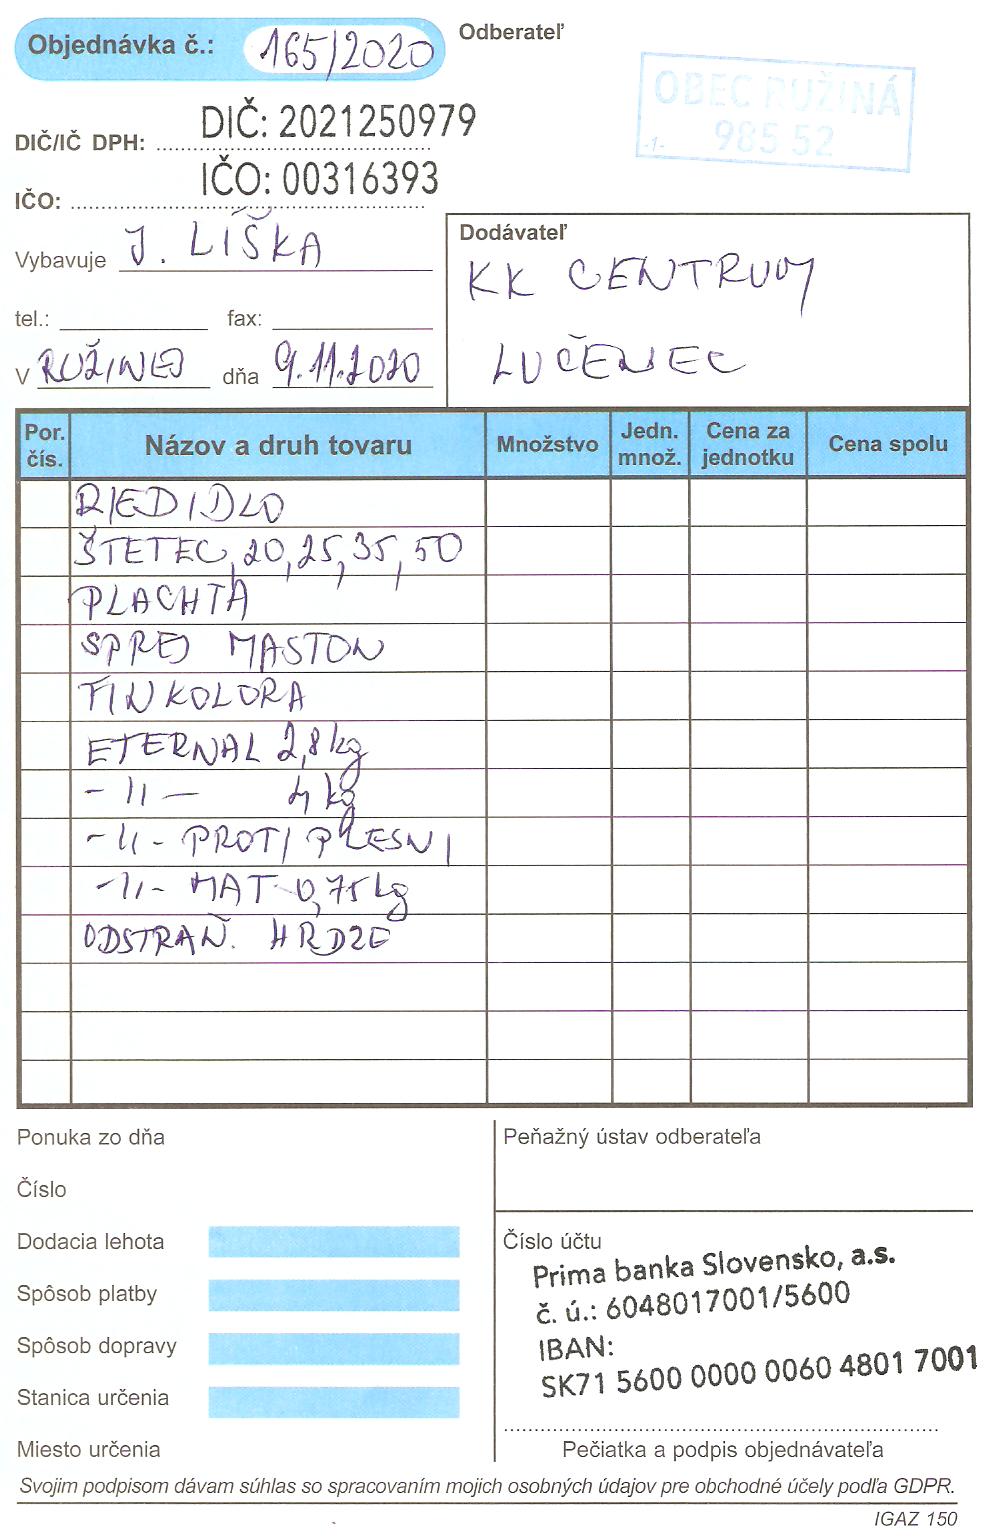 Objednávka č.: 165/2020
Odberateľ
OBEC RUŽINÁ
985 52
-1-
DIČ/IČ DPH: DIČ: 2021250979
IČO: IČO: 00316393
Vybavuje J. LÍŠKA
tel.: fax:
V RUŽINEJ dňa 9.11.2020
Dodávateľ
KK CENTRUM
LUČENEC
Por. čís. Názov a druh tovaru Množstvo Jedn. množ. Cena za jednotku Cena spolu
RIEDIDLO
ŠTETEC, 20, 25, 35, 50
PLACHTA
SPREJ MASTON
TINKOLORA
ETERNAL 2,8 kg
-II- 4 kg
-II- PROTI PLESNI
-II- MAT 0,75 kg
ODSTRAŇ. HRDZE
Ponuka zo dňa
Číslo
Dodacia lehota
Spôsob platby
Spôsob dopravy
Stanica určenia
Miesto určenia
Peňažný ústav odberateľa
Číslo účtu
Prima banka Slovensko, a.s.
č. ú.: 6048017001/5600
IBAN:
SK71 5600 0000 0060 4801 7001
Pečiatka a podpis objednávateľa
Svojim podpisom dávam súhlas so spracovaním mojich osobných údajov pre obchodné účely podľa GDPR.
IGAZ 150